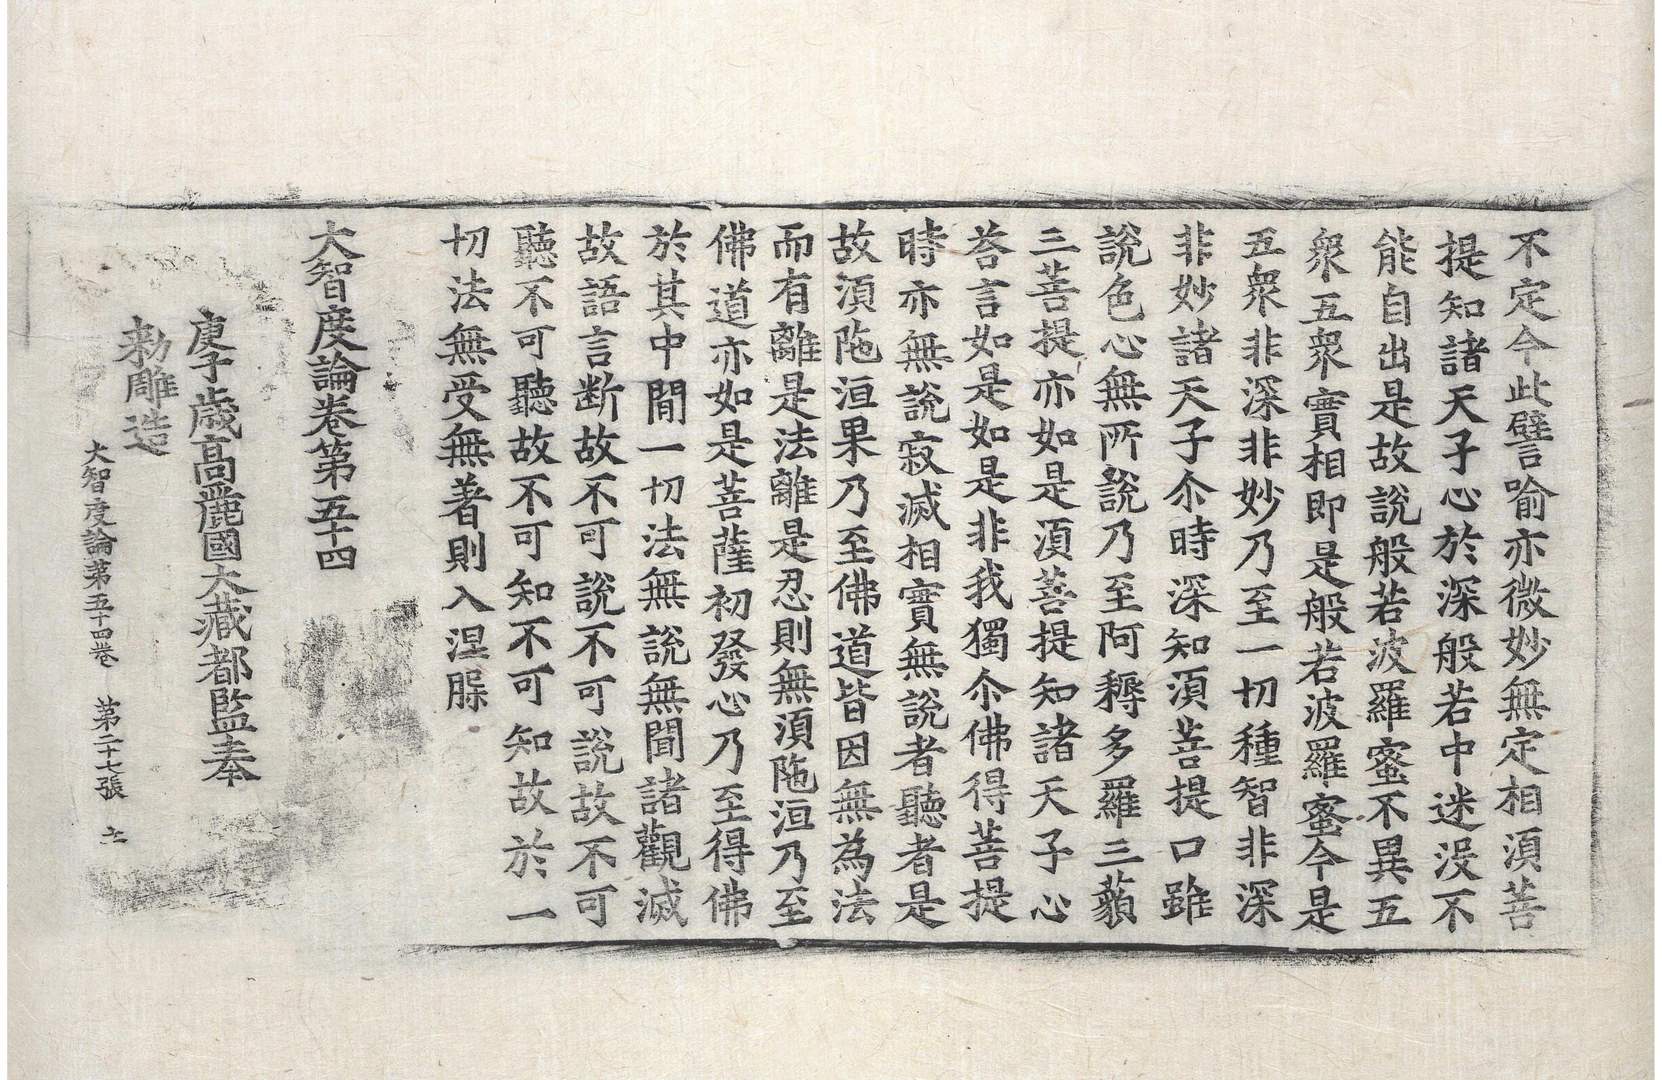 不定今此譬喻亦微妙無定相湏菩
提知諸天子心於深般若中迷没不
能自出是故說般若波羅蜜不異五
衆五衆實相即是般若波羅蜜今是
五衆非深非妙乃至一切種智非深
非妙諸天子尒時深知湏菩提口雖
說色心無所說乃至阿耨多羅三藐
三菩提亦如是湏菩提知諸天子心
荅言如是如是非我獨尒佛得菩提
時亦無說寂滅相實無說者聽者是
故湏陁洹果乃至佛道皆因無為法
而有離是法離是忍則無湏陁洹乃至
佛道亦如是菩薩初發心乃至得佛
於其中閒一切法無說無聞諸觀滅
故語言断故不可說不可說故不可
聽不可聽故不可知不可知故於一
切法無受無著則入涅䏶
大智度論卷第五十四
庚子歲高麗國大藏都監奉
勅雕造
大智度論第五十四卷 第二十七張